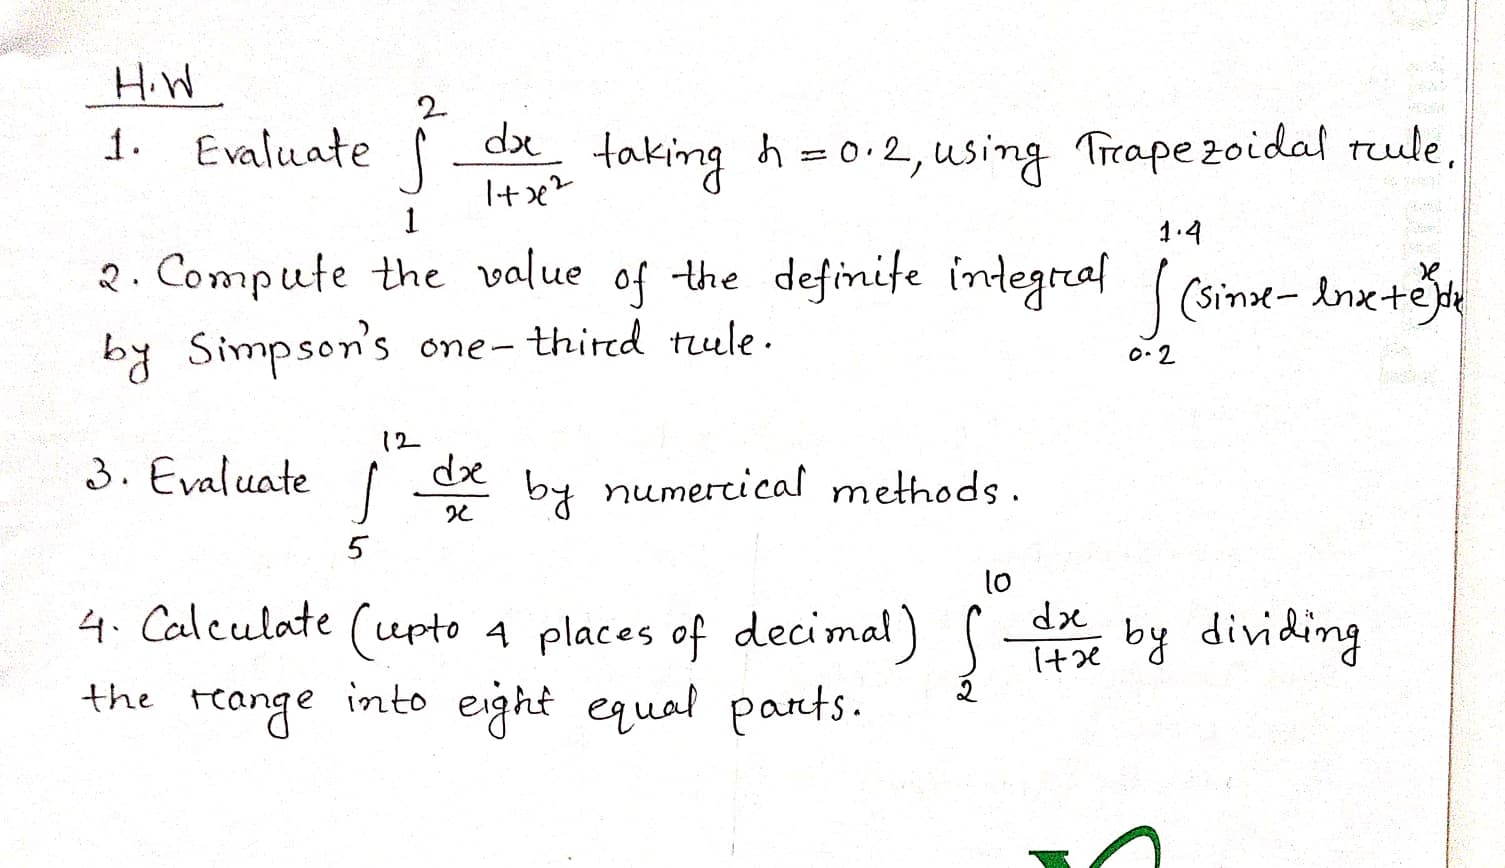 H.W
1. Evaluate ∫₁² dx/(1+x²) taking h = 0.2, using Trapezoidal rule.
2. Compute the value of the definite integral ∫₀.₂^1.4 (sinx - lnx + eˣ)dx
by Simpson's one-third rule.
3. Evaluate ∫₅¹² dx/x by numerical methods.
4. Calculate (upto 4 places of decimal) ∫₂¹⁰ dx/(1+x) by dividing
the range into eight equal parts.